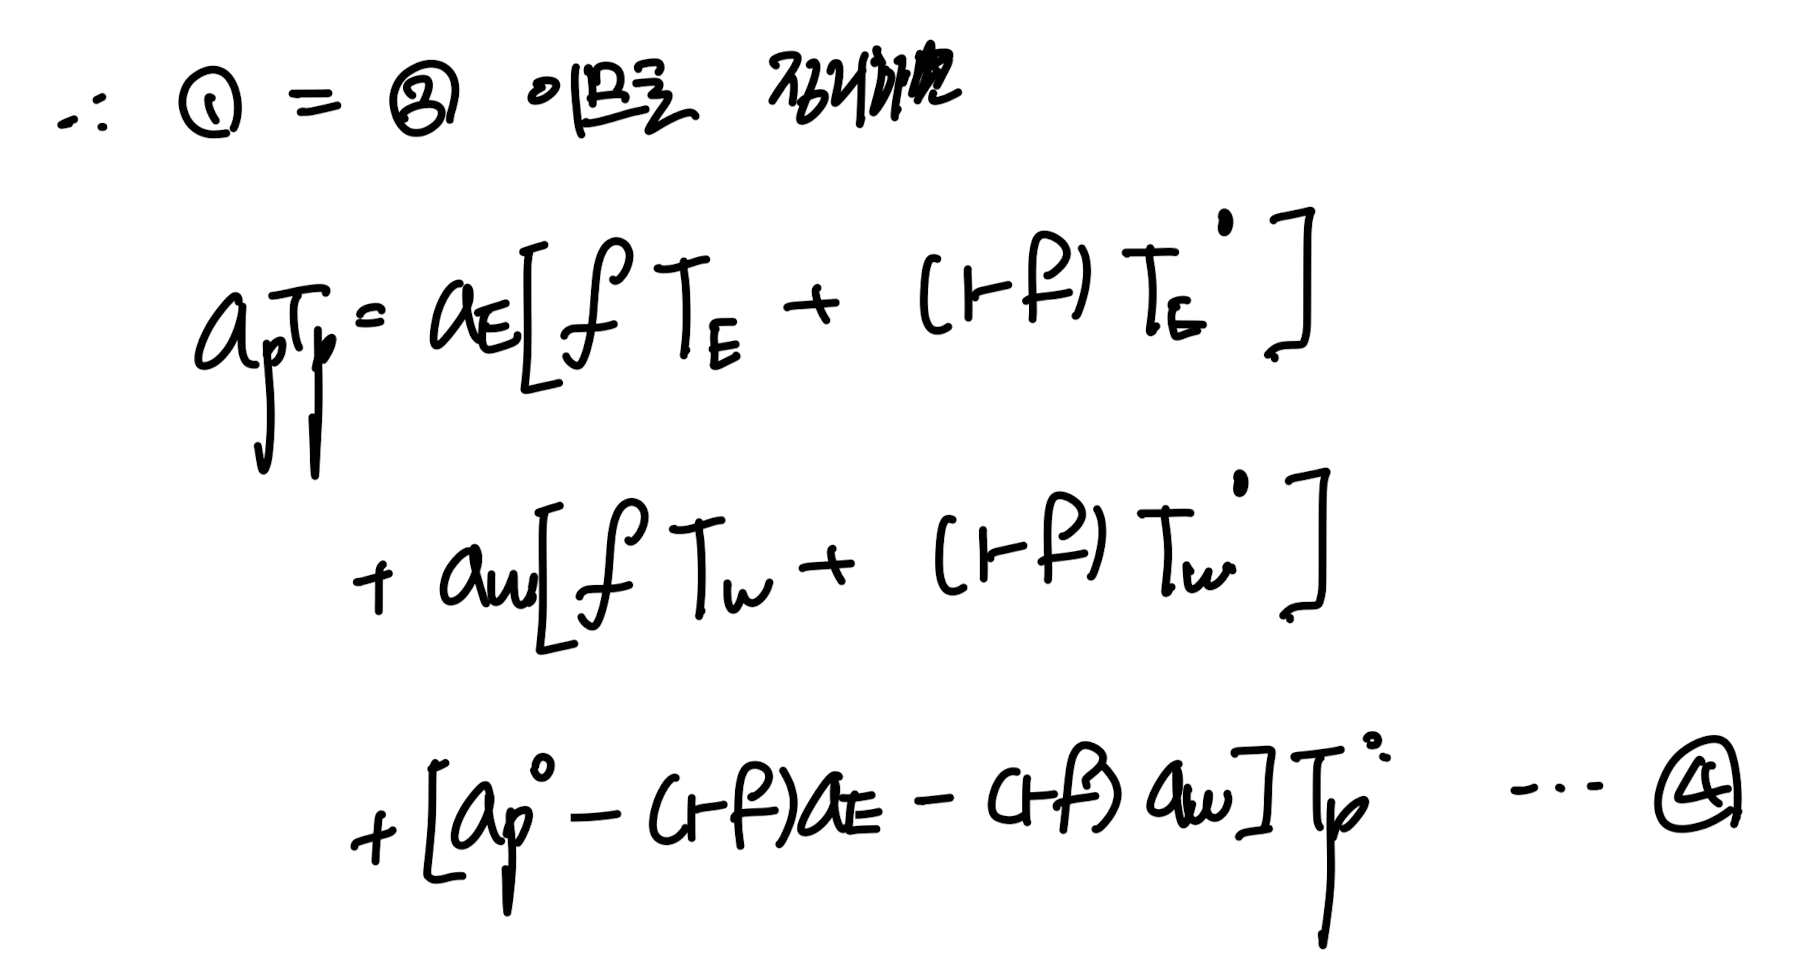 ∴ ① = ② 이므로 정리하면
a_P T_P = a_E [f T_E + (1-f) T_E°]
+ a_W [f T_W + (1-f) T_W°]
+ [a_P° - (1-f) a_E - (1-f) a_W] T_P° ... ④